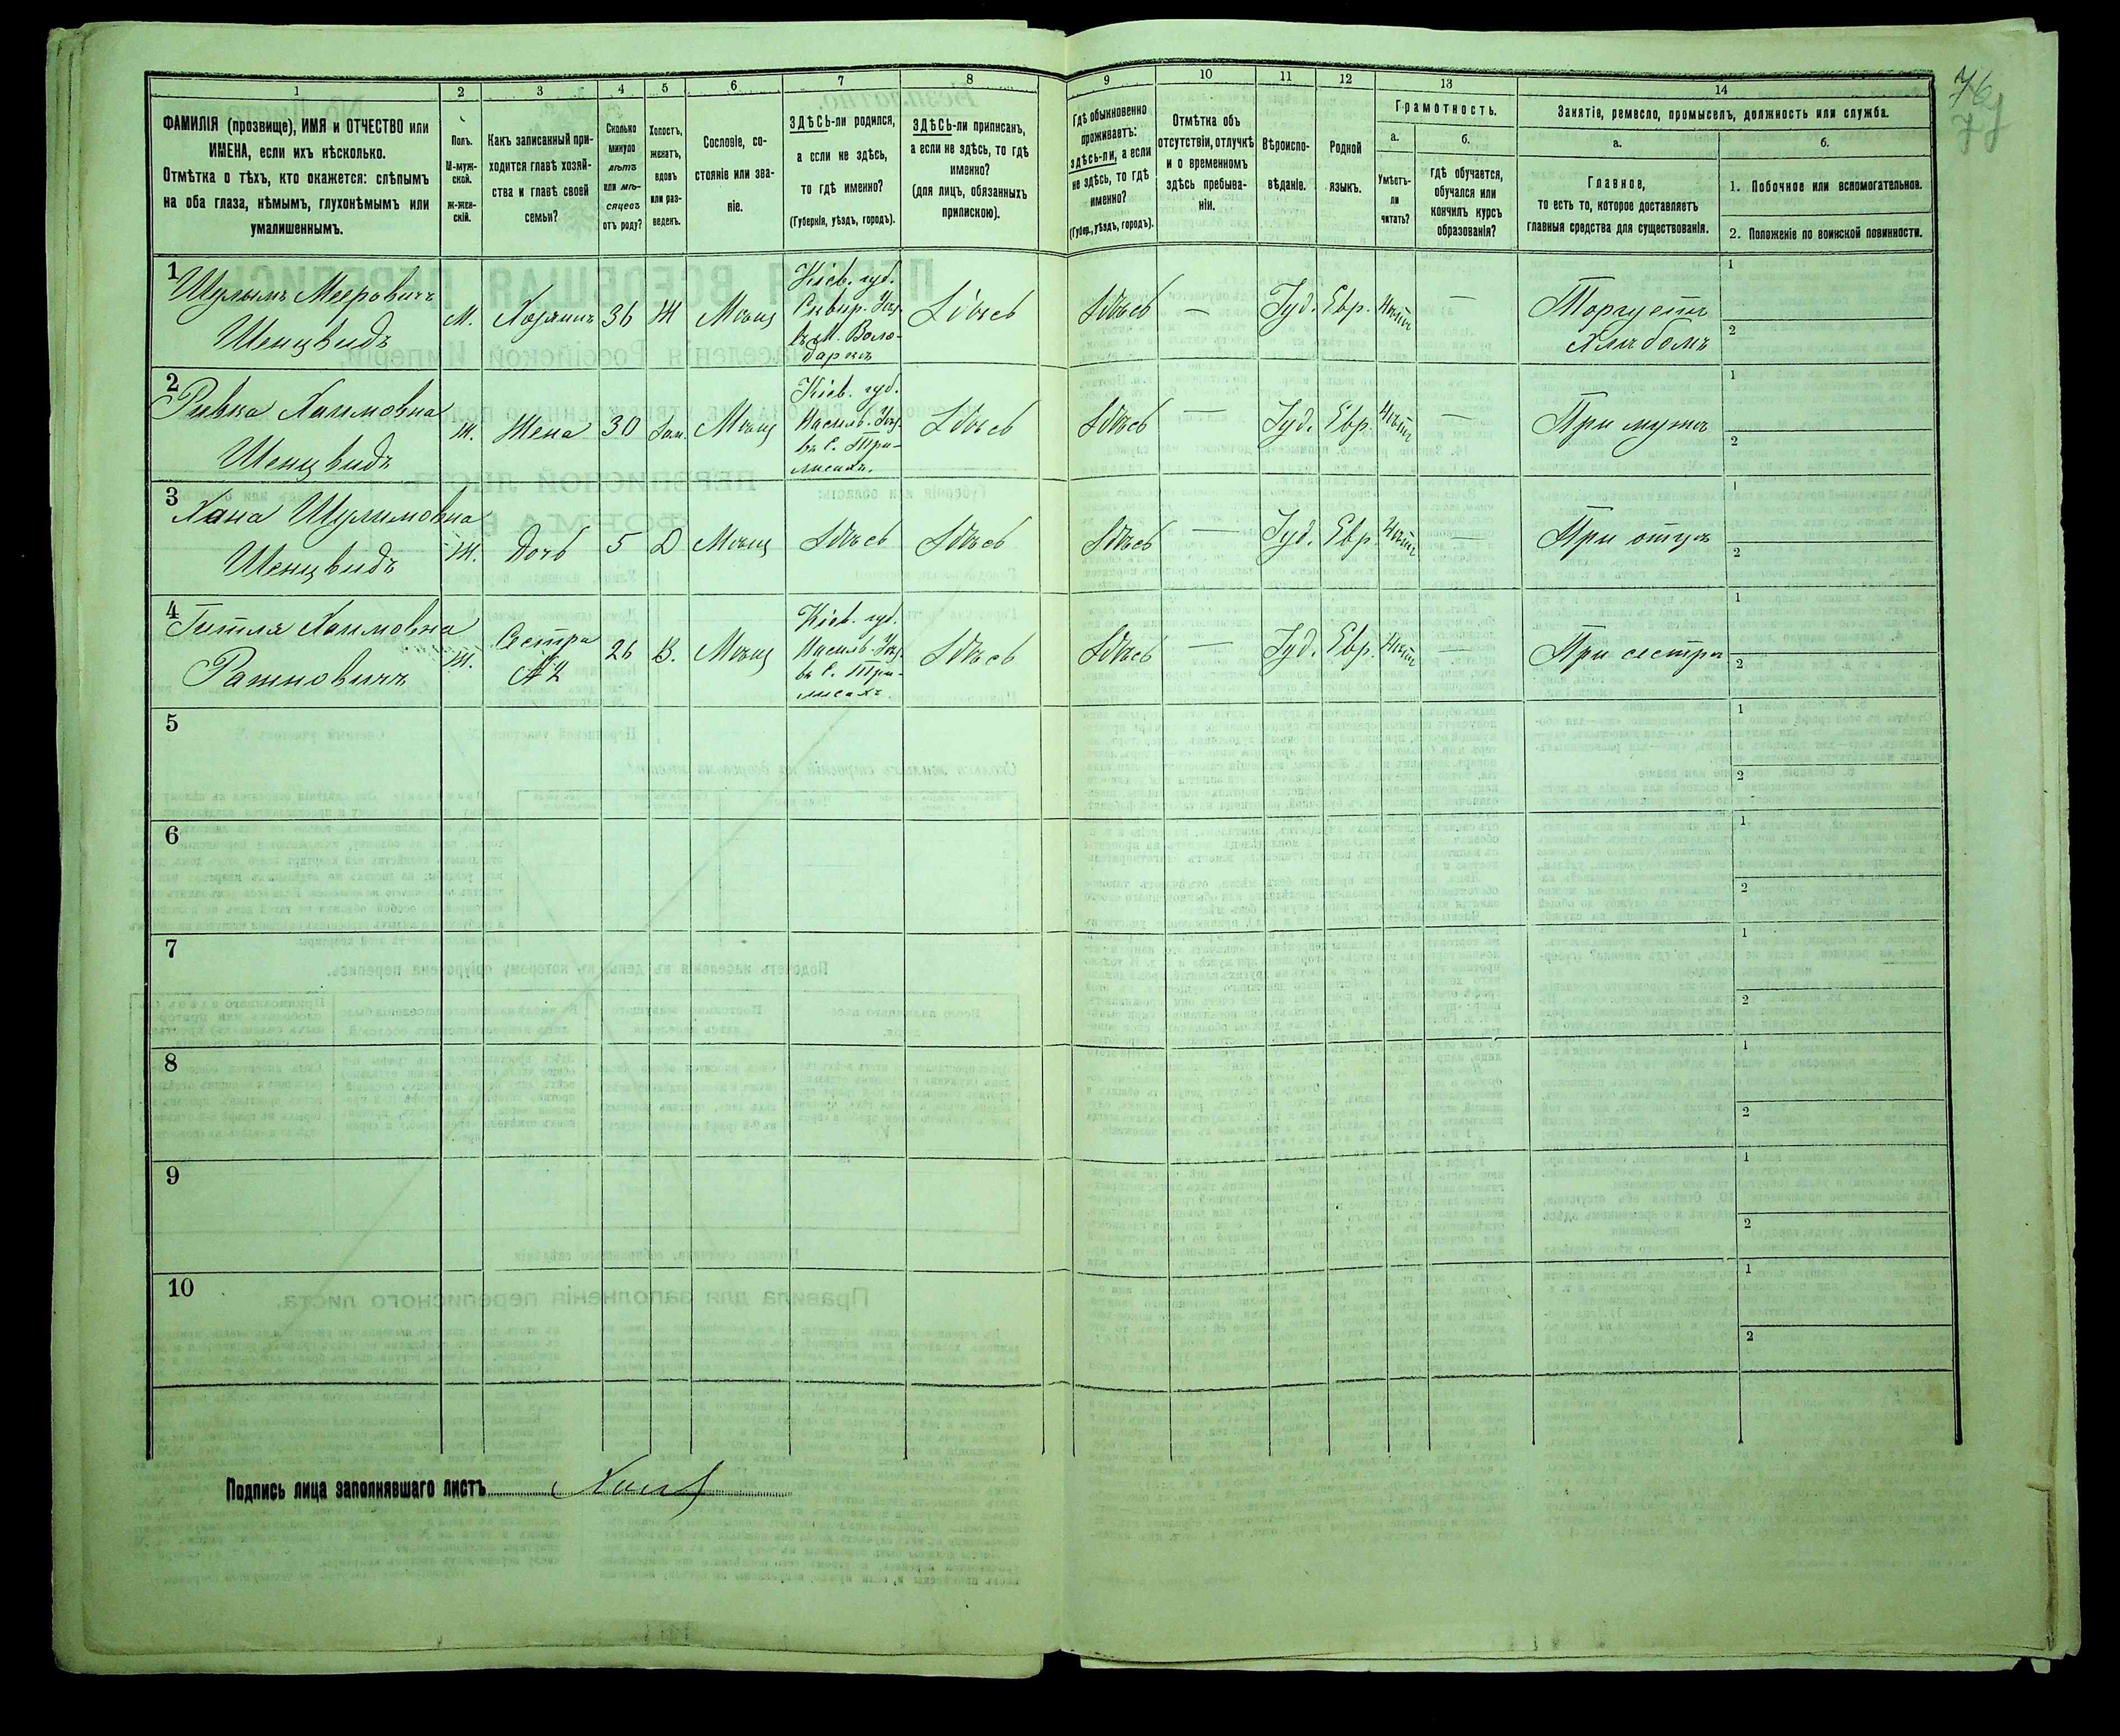 76
77
1
2
3
4
5
6
7
8
9
10
11
12
13
14
ФАМИЛІЯ (прозвище), ИМЯ и ОТЧЕСТВО или
ИМЕНА, если ихъ нѣсколько.
Отмѣтка о тѣхъ, кто окажется: слѣпымъ
на оба глаза, нѣмымъ, глухонѣмымъ или
умалишеннымъ.
Полъ.
М-муж-
ской.
ж-жен-
скій.
Какъ записанный при-
ходится главѣ хозяй-
ства и главѣ своей
семьи?
Сколько
минуло
лѣтъ
или мѣ-
сяцевъ
отъ роду?
Холостъ,
женатъ,
вдовъ
или раз-
веденъ.
Сословіе, со-
стояніе или зва-
ніе.
ЗДѢСЬ-ли родился,
а если не здѣсь,
то гдѣ именно?
(Губернія, уѣздъ, городъ).
ЗДѢСЬ-ли приписанъ,
а если не здѣсь, то гдѣ
именно?
(для лицъ, обязанныхъ
припискою).
Гдѣ обыкновенно
проживаетъ:
здѣсь-ли, а если
не здѣсь, то гдѣ
именно?
(Губер., уѣздъ, городъ).
Отмѣтка объ
отсутствіи, отлучкѣ
и о временномъ
здѣсь пребыва-
ніи.
Вѣроиспо-
вѣданіе.
Родной
языкъ.
Грамотность.
а.
Умѣетъ-
ли
читать?
б.
гдѣ обучается,
обучался или
кончилъ курсъ
образованія?
Занятіе, ремесло, промыселъ, должность или служба.
а.
Главное,
то есть то, которое доставляетъ
главныя средства для существованія.
б.
1. Побочное или вспомогательное.
2. Положеніе по воинской повинности.
1
Шулымъ Мееровичъ
Шенцвидъ
М.
Хозяинъ
36
Ж
Мѣщ
Кіев. губ.
Сквир. Уѣз.
въ М. Воло-
даркѣ
Здѣсь
Здѣсь
—
Іуд.
Евр.
Нѣтъ
—
Торгуетъ
Хлѣбомъ
1
2
2
Ривка Хаимовна
Шенцвидъ
Ж.
Жена
30
Зам.
Мѣщ
Кіев. губ.
Васильк. Уѣз.
въ С. Три-
лисахъ.
Здѣсь
Здѣсь
—
Іуд.
Евр.
Нѣтъ
—
При мужѣ
1
2
3
Хана Шулимовна
Шенцвидъ
Ж.
Дочь
5
Д
Мѣщ
Здѣсь
Здѣсь
Здѣсь
—
Іуд.
Евр.
Нѣтъ
—
При отцѣ
1
2
4
Гитля Хаимовна
Ж.
Сестра
№2
26
В.
Мѣщ
Кіев. губ.
Васильк. Уѣз.
въ С. Три-
лисахъ.
Здѣсь
Здѣсь
—
Іуд.
Евр.
Нѣтъ
—
При сестрѣ
1
2
5
1
2
6
1
2
7
1
2
8
1
2
9
1
2
10
1
2
Подпись лица заполнявшаго листъ